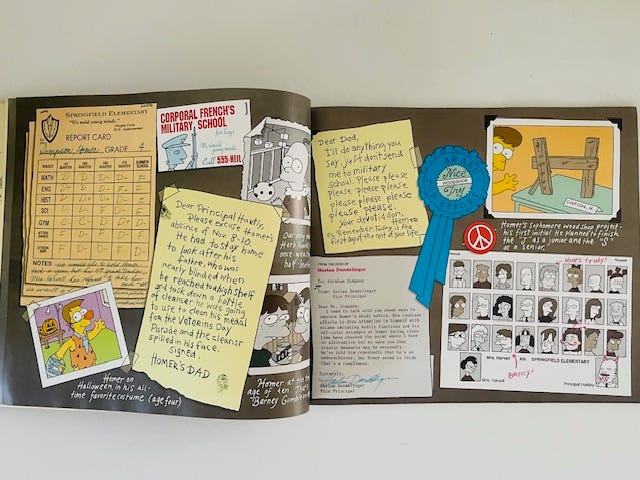 SPRINGFIELD ELEMENTARY
"We mould young minds."
REPORT CARD
Simpson, Homer GRADE 4
SUBJECT 1ST QUARTER 2ND QUARTER 3RD QUARTER 4TH QUARTER SUMMER SCHOOL
MATH
ENG
HIST
SCI
GEO
GYM
NOTES
CORPORAL FRENCH'S
MILITARY SCHOOL
for boys
We mould
young minds.
Call 555-HELL
Dear Principal Hartly,
Please excuse Homer's
absince of Nov. 8-10.
He had to stay home
to look after his
father who was
nearly blinded when
he reached to a high shelf
and took down a bottle
of cleanser he was going
to use to clean his medal
for the Veterins Day
Parade and the cleanser
spilled in his face.
signed,
HOMER'S DAD
Homer on
Halloween, in his all-
time favorite costume (age four)
Our only
Herb
once we
half
Homer at the
age of ten. That's
"Barney Gumble
Dear Dad,
I'll do anything you
say, just dont send
me to military
school. Please please
please please please
please please please
please please.
your devoted son,
Homer
P.S. Remember: Today is the
first day of the rest of your life.
Nice
Try
WOODSHOP
SIMPSON, H.
Homer's sophomore wood shop project-
his first initial. He planned to finish
the "J" as a junior and the "S"
as a senior.
FROM THE DESK OF
Harlan Dondelinger
To: Abraham Simpson
From: Harlan Dondelinger
Vice Principal
Dear Mr. Simpson:
I need to talk with you about ways to
improve Homer's study habits. His constant
efforts to draw attention to himself with
noises imitating bodily functions and his
off-color attempts at humor during class
time have reached the point where I have
no alternative but to warn you that
drastic measures may be necessary.
We've told him repeatedly that he's an
underachiever, but Homer seems to think
that's a compliment.
Sincerely,
Harlan Dondelinger
Vice Principal
Yours truly!
Mrs. Harrell 4th SPRINGFIELD ELEMENTARY
Barney!
Mrs. Harrell
Principal Hartley